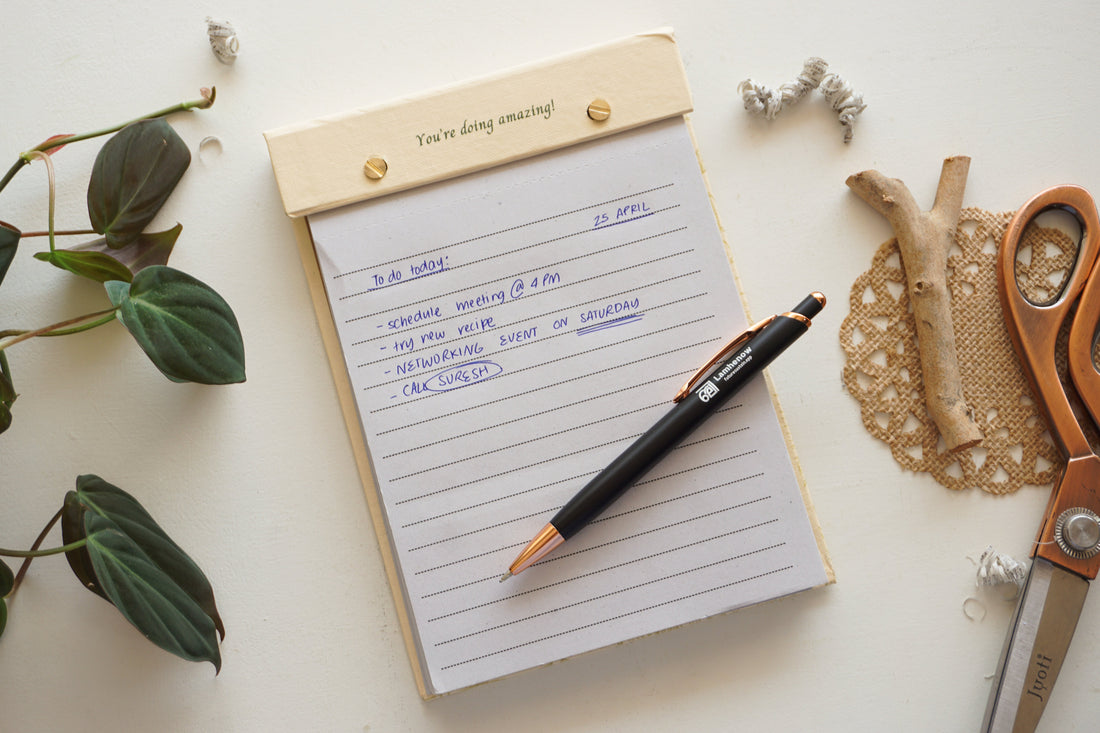 You're doing amazing!
25 APRIL
To do today:
- schedule meeting @ 4 PM
- try new recipe
- NETWORKING EVENT ON SATURDAY
- CALL SURESH
Lamhenow
Jyoti